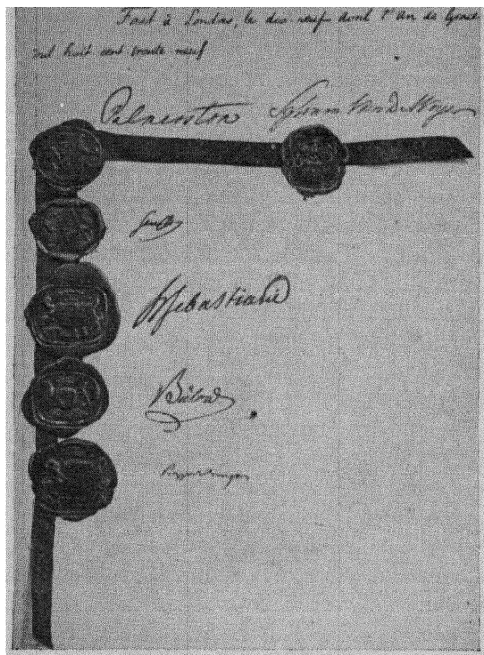 Fait à Londres, le dix neuf Avril l'An de Grace
mil huit cent trente neuf
Palmerston Sylvain Van de Weyer
Senfft
H Sebastiani
Bülow